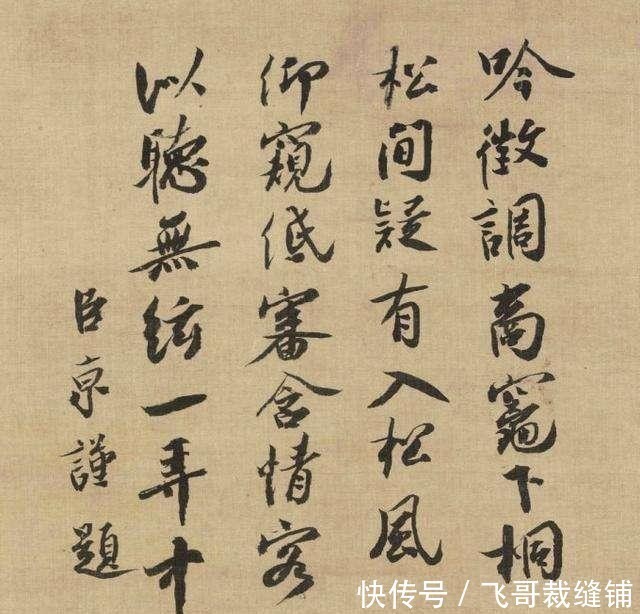 吟徵調商竈下桐
松間疑有入松風
仰窺低審含情客
似聽無絃一弄中
臣京謹題
快传号 / 飞哥裁缝铺